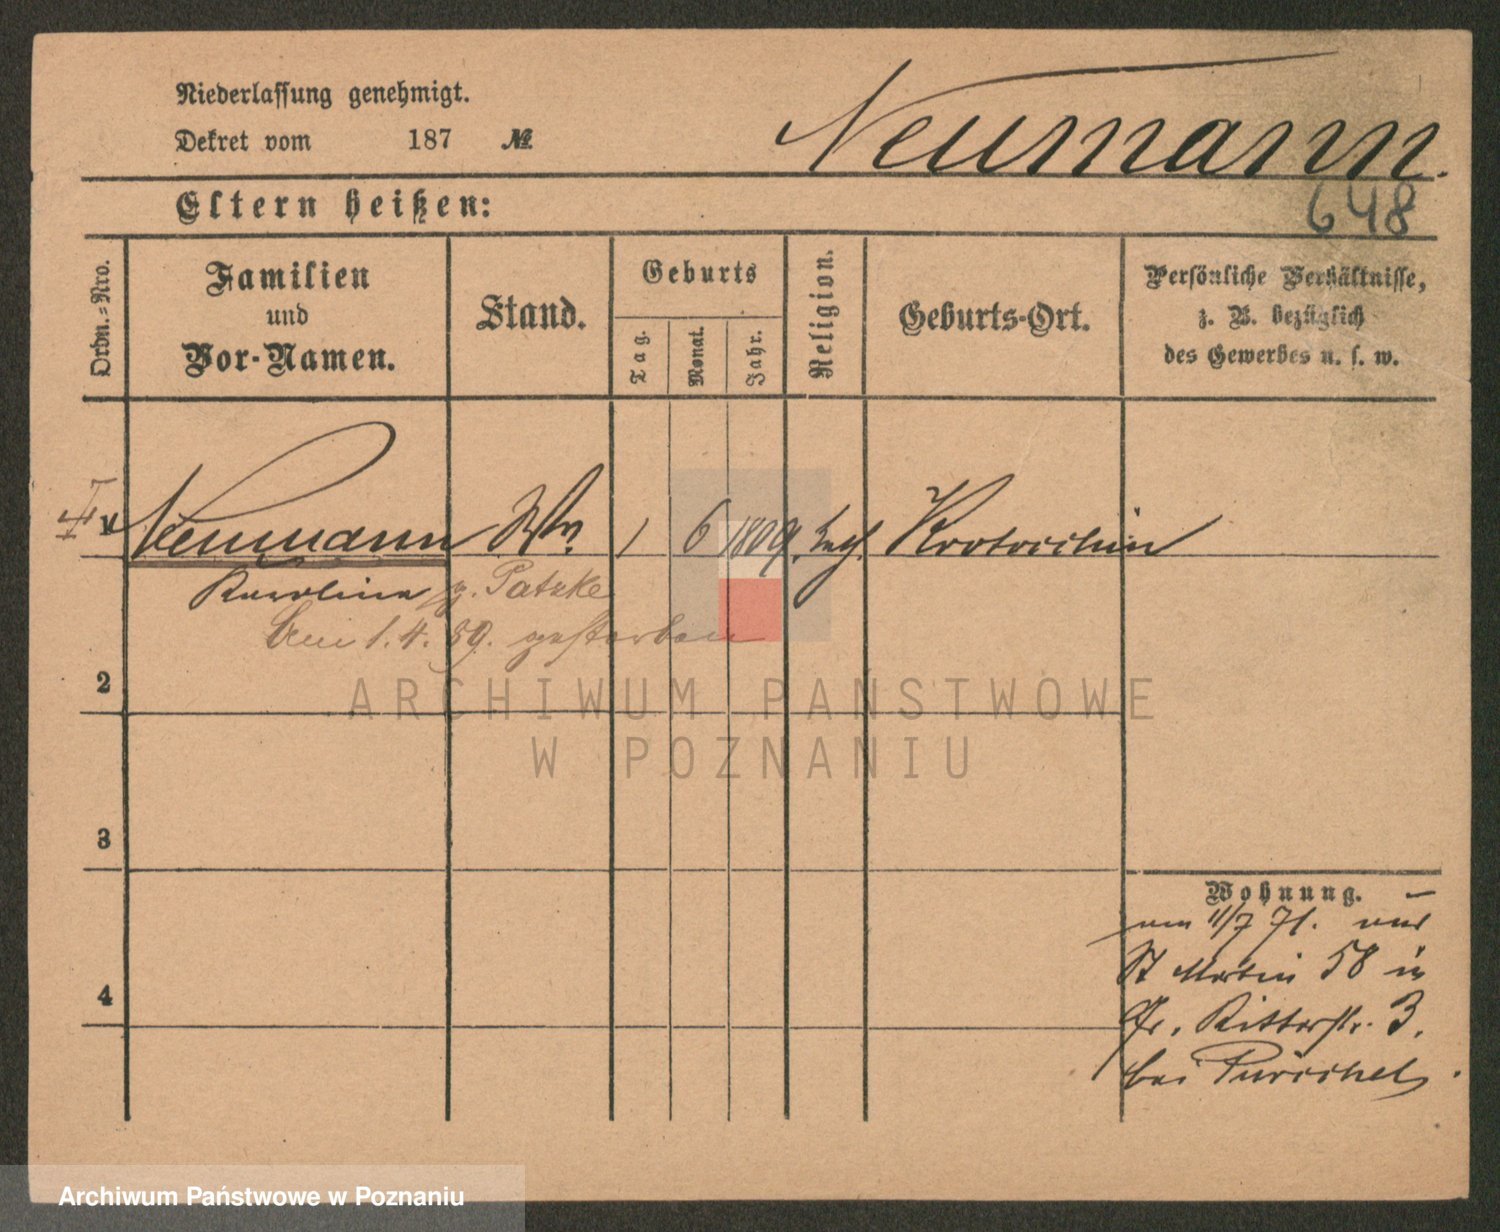 Niederlassung genehmigt.
Dekret vom 187 №
Neumann.
648
Eltern heißen:
Ordn.-Nro.
Familien
und
Vor-Namen.
Stand.
Geburts
Tag.
Monat.
Jahr.
Religion.
Geburts-Ort.
Persönliche Verhältnisse,
z. B. bezüglich
des Gewerbes u. s. w.
1 Neumann Ww. 1 6 1809. Krotoschin
Karolina g. Patzke
Am 1.4.89. gestorben
2
3
4
Wohnung.
am 11/7 71. aus
St Martin 58 in
Gr. Ritterstr. 3.
bei
ARCHIWUM PAŃSTWOWE
W POZNANIU
Archiwum Państwowe w Poznaniu